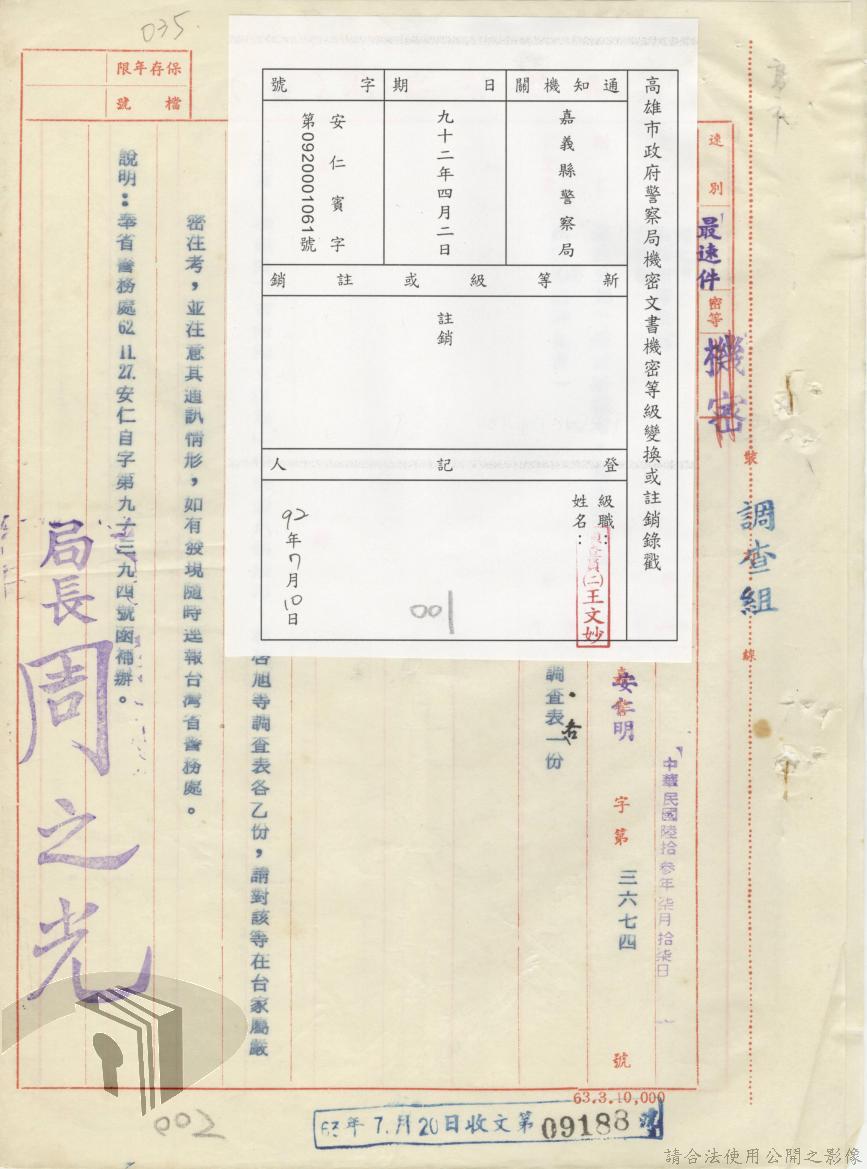 035
保存年限
檔號
速別
最速件
密等
機密
裝
線
調查組
中華民國陸拾參年柒月拾柒日
安仁明
字第
三六七四
號
調查表一份
啓旭等調查表各乙份，請對該等在台家屬嚴
密注考，並注意其通訊情形，如有發現隨時逕報台灣省警務處。
說明：奉省警務處62.11.27.安仁自字第九三九四號函補辦。
局長周之光
高雄市政府警察局機密文書機密等級變換或註銷錄戳
通知機關
日期
字號
嘉義縣警察局
九十二年四月二日
安仁賓字
第0920001061號
新等級或註銷
註銷
登記人
級職：
姓名：
(二)王文妙
92年7月10日
001
002
63.3.10,000
63年7.月20日收文第09188號
請合法使用公開之影像